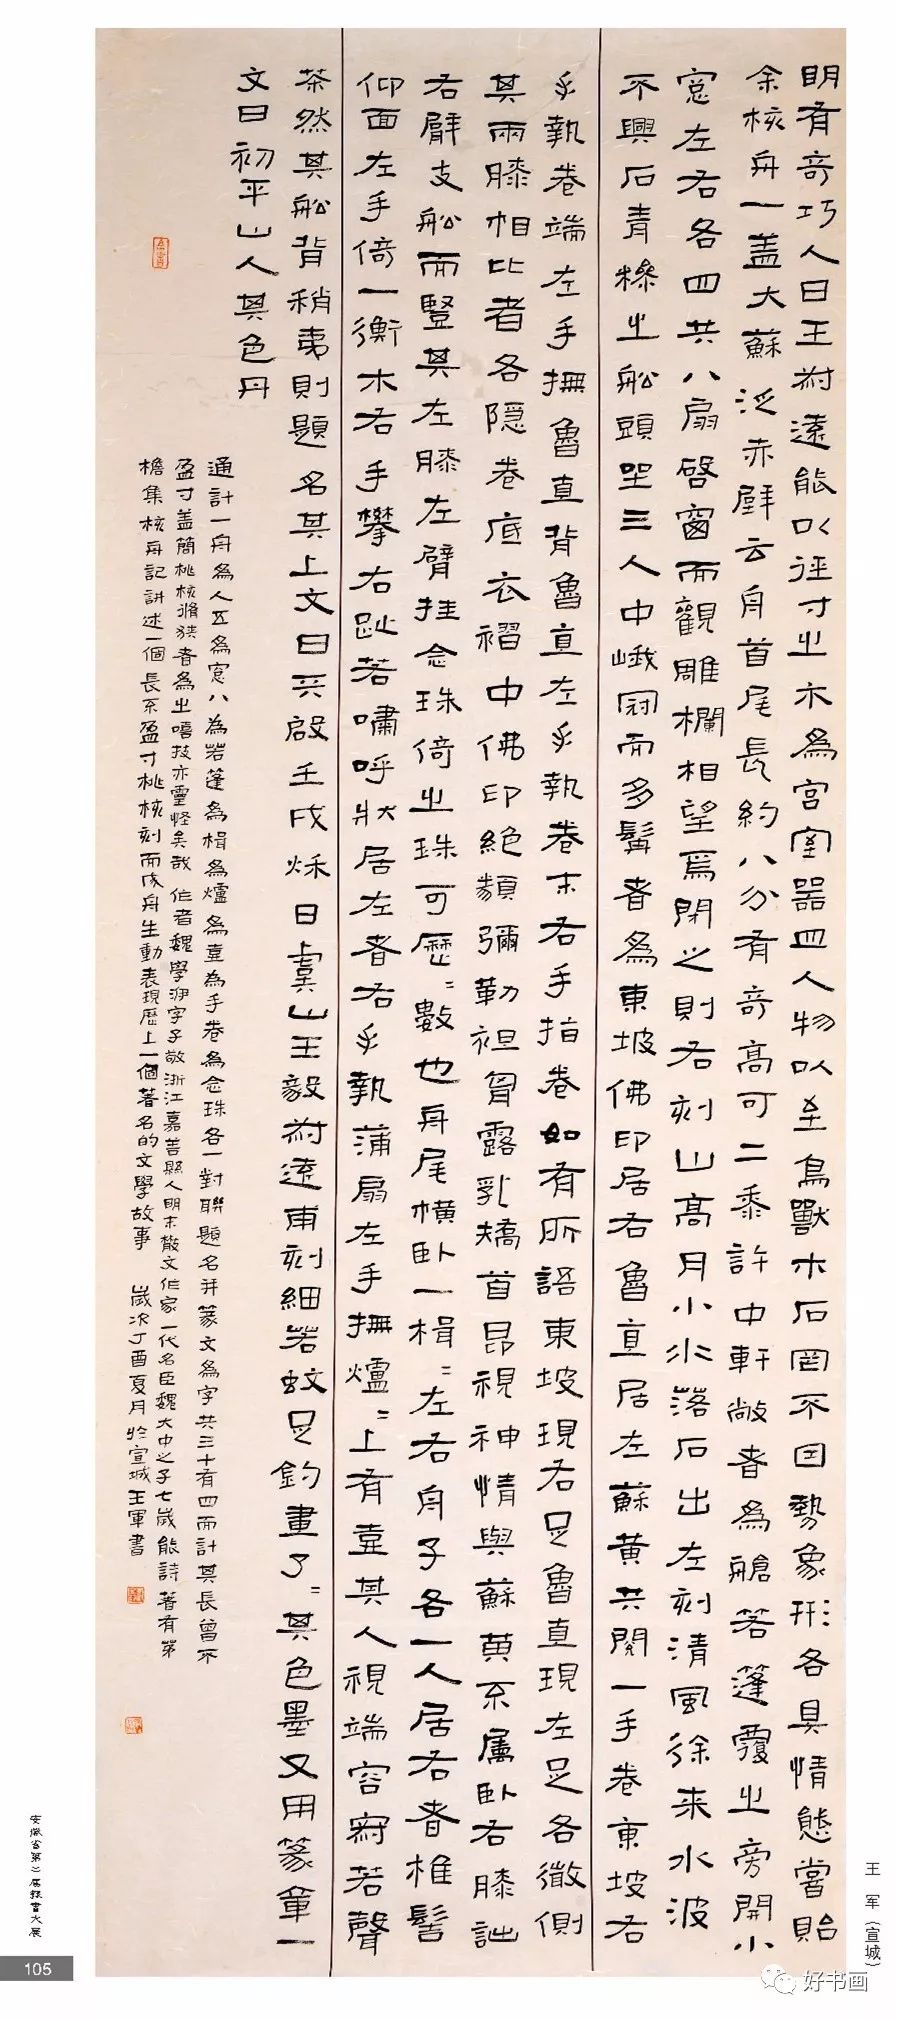 明有奇巧人曰王叔遠能以徑寸之木為宮室器皿人物以至鳥獸木石罔不因勢象形各具情態嘗貽
余核舟一蓋大蘇泛赤壁云舟首尾長約八分有奇高可二黍許中軒敞者為艙箬篷覆之旁開小
窗左右各四共八扇啓窗而觀雕欄相望焉閉之則右刻山高月小水落石出左刻清風徐来水波
不興石青糝之船頭坐三人中峨冠而多髯者為東坡佛印居右魯直居左蘇黃共閱一手卷東坡右
手執卷端左手撫魯直背魯直左手執卷末右手指卷如有所語東坡現右足魯直現左足各微側
其兩膝相比者各隱卷底衣褶中佛印絕類彌勒袒胸露乳矯首昂視神情與蘇黃不屬卧右膝詘
右臂支船而豎其左膝左臂挂念珠倚之珠可歷=數也舟尾橫卧一楫=左右舟子各一人居右者椎髻
仰面左手倚一衡木右手攀右趾若嘯呼狀居左者右手執蒲扇左手撫爐=上有壺其人視端容寂若聲
茶然其船背稍夷則題名其上文曰天啟壬戌秋日虞山王毅叔遠甫刻細若蚊足鈎畫了=其色墨又用篆章一
文曰初平山人其色丹
通計一舟為人五為窗八為箬篷為楫為爐為壺為手卷為念珠各一對聯題名并篆文為字共三十有四而計其長曾不
盈寸蓋簡桃核脩狹者為之嘻技亦靈怪矣哉 作者魏學洢字子敬浙江嘉善縣人明末散文作家一代名臣魏大中之子七歲能詩著有茅
檐集核舟記講述一個長不盈寸桃核刻而成舟生動表現歷上一個著名的文學故事 歲次丁酉夏月於宣城王軍書
王 军（宣城）
安徽省第二届隶书大展
105
好书画